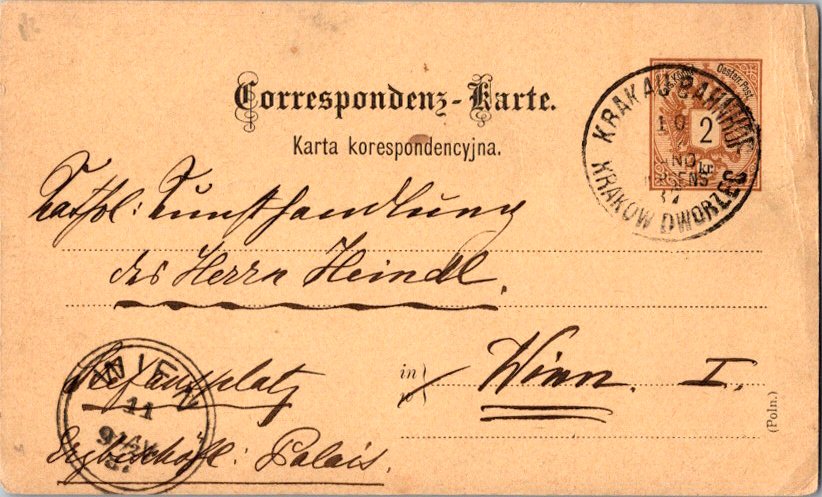 Correspondenz-Karte.
Karta korespondencyjna.
Oesterr. Post.
2
kr
KRAKAU BAHNHOF
10
KRAKOW DWORZEC
Kathol: Kunsthandlung
des Herrn Heindl.
in
w
Wien. I.
Stefansplatz
Erzbischöfl: Palais.
WIEN
11
(Poln.)